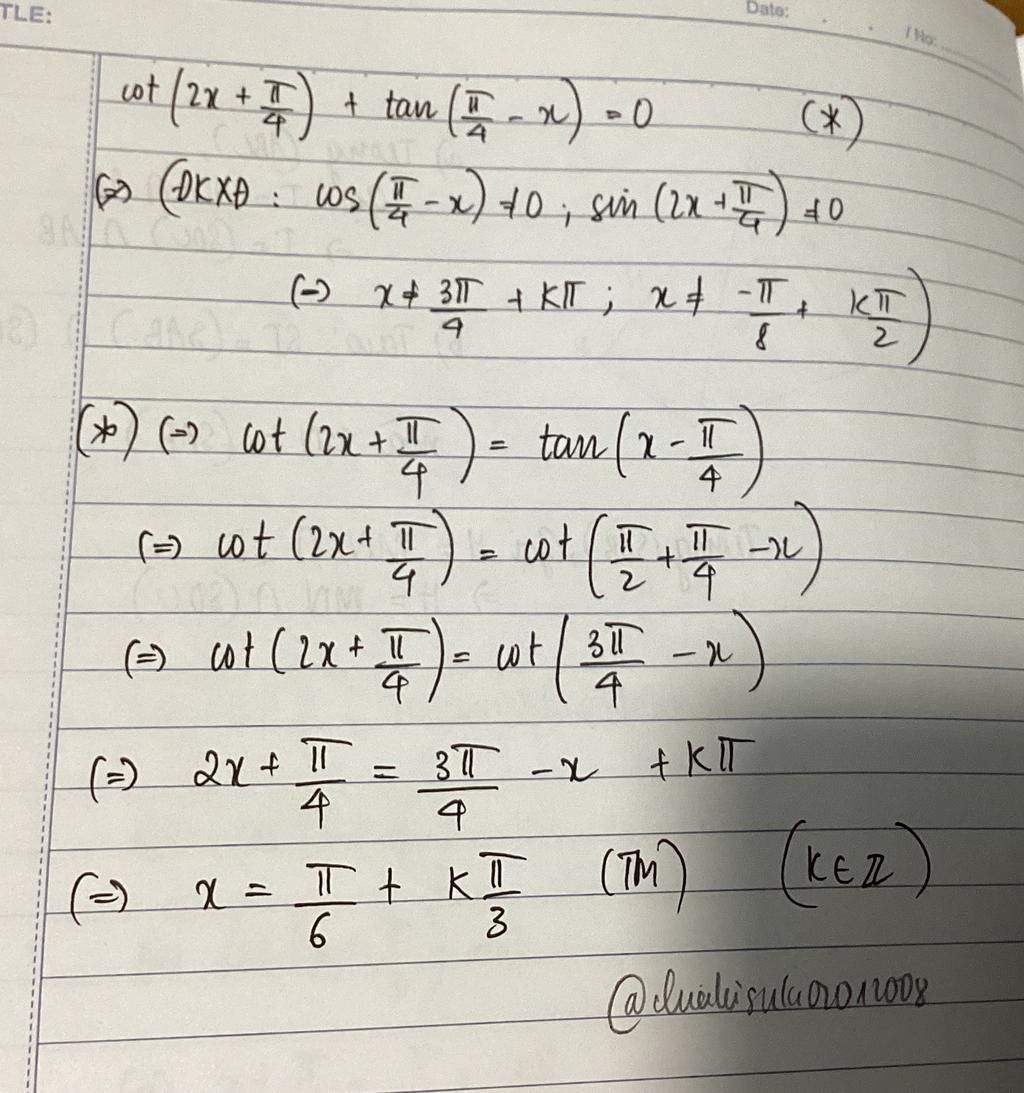 TLE:
Date: . . / No:
cot(2x + π/4) + tan(π/4 - x) = 0 (*)
(=) (ĐKXĐ : cos(π/4 - x) ≠ 0 ; sin(2x + π/4) ≠ 0
(=) x ≠ 3π/4 + kπ ; x ≠ -π/8 + kπ/2)
(*) (=) cot(2x + π/4) = tan(x - π/4)
(=) cot(2x + π/4) = cot(π/2 + π/4 - x)
(=) cot(2x + π/4) = cot(3π/4 - x)
(=) 2x + π/4 = 3π/4 - x + kπ
(=) x = π/6 + kπ/3 (TM) (k ∈ Z)